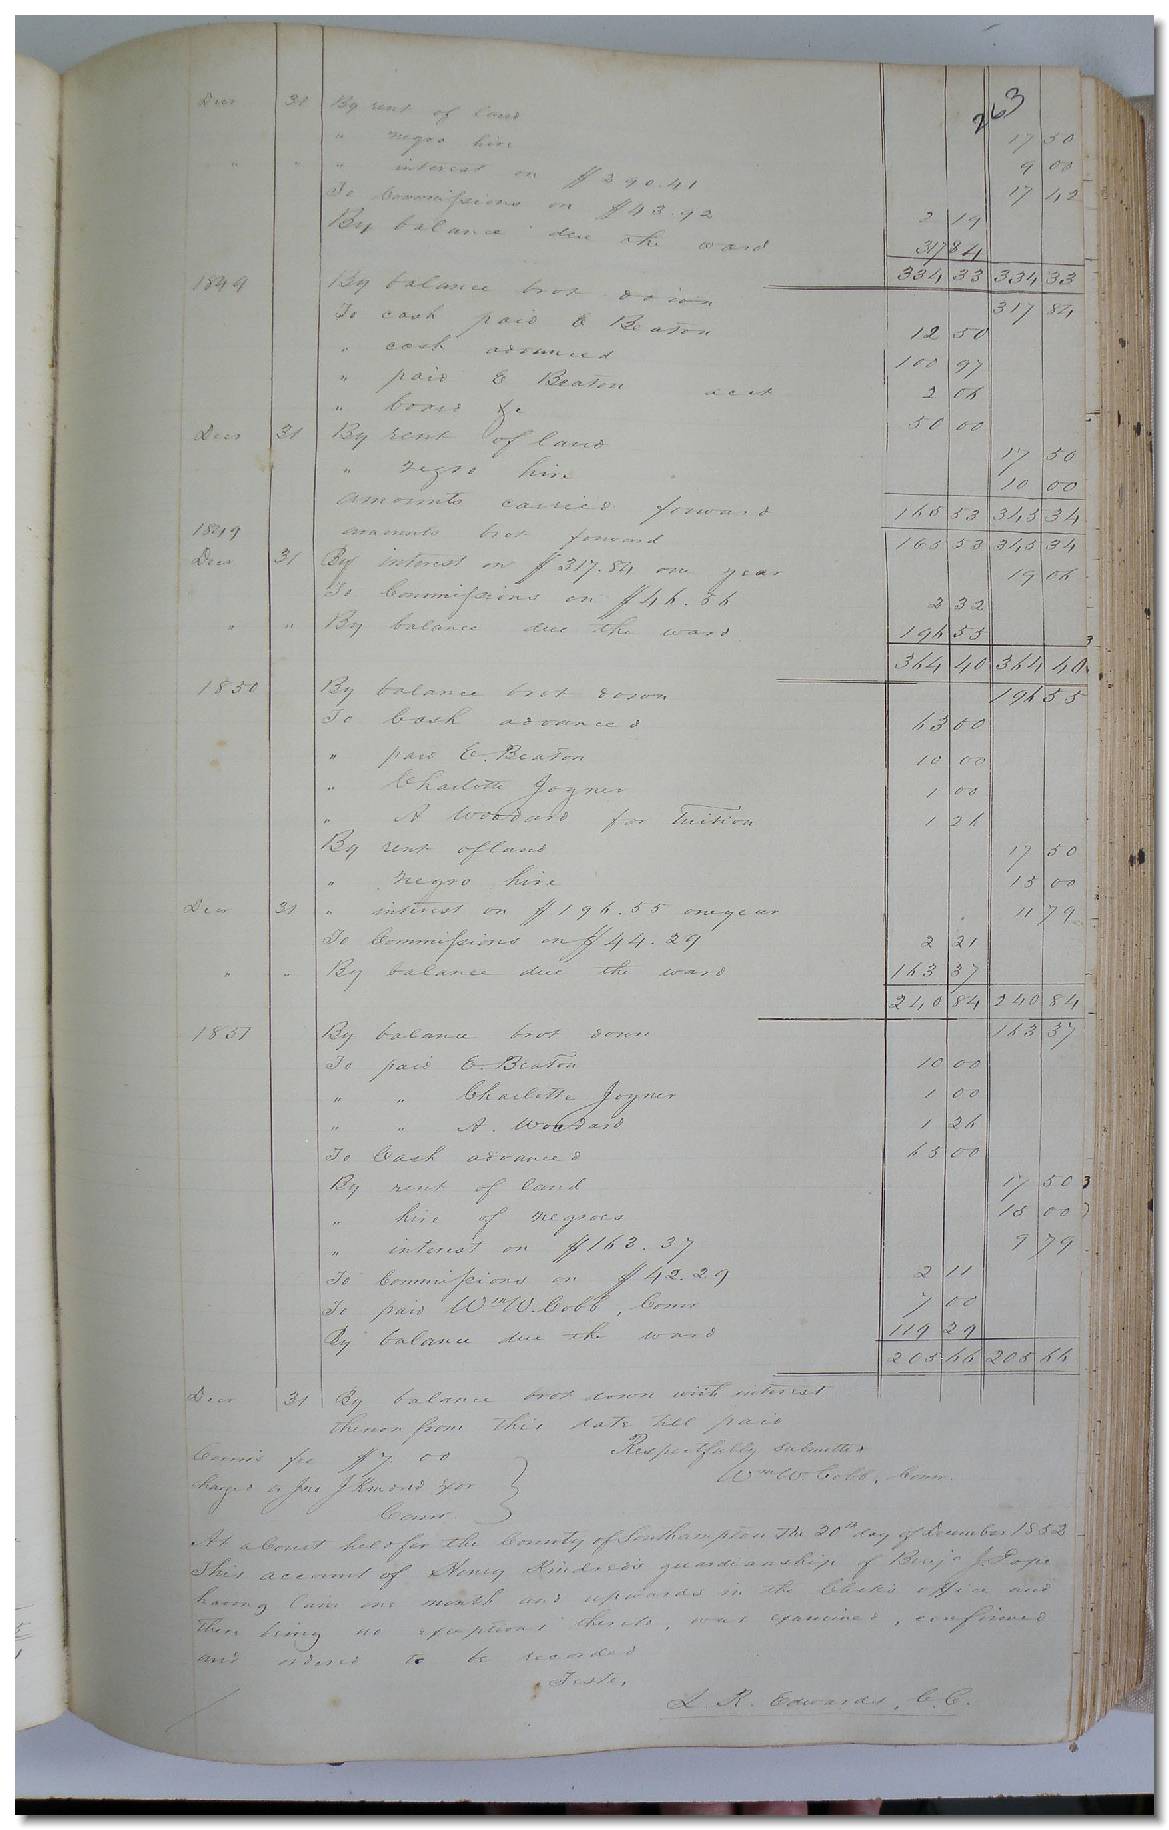 263
Decr 31 By rent of land 17 50
" negro hire 9 00
" " " interest on $290.41 17 42
To Commissions on $43.92 2 19
By balance due the ward 317 84
334 33 334 33
1849 By balance brot down 317 84
To cash paid E Beaton 12 50
" cash advanced 100 97
" paid E Beaton acct 2 06
" board &c 50 00
Decr 31 By rent of land 17 50
" negro hire 10 00
amounts carried forward 165 53 345 34
1849 amounts brot forward 165 53 345 34
Decr 31 By interest on $317.84 one year 19 06
To Commissions on $46.56 2 32
" " By balance due the ward 196 55
364 40 364 40
1850 By balance brot down 196 55
To Cash advanced 63 00
" paid E. Beaton 10 00
" Charlotte Joyner 1 00
" A Woodard for Tuition 1 26
By rent of land 17 50
" negro hire 15 00
Decr 31 " interest on $196.55 one year 11 79
To Commissions on $44.29 2 21
" " By balance due the ward 163 37
240 84 240 84
1851 By balance brot down 163 37
To paid E. Beaton 10 00
" " Charlotte Joyner 1 00
" " A. Woodard 1 26
To Cash advanced 65 00
By rent of land 17 50
" hire of negroes 15 00
" interest on $163.37 9 79
To Commissions on $42.29 2 11
To paid Wm W. Cobb, Comr 7 00
By balance due the ward 119 29
205 66 205 66
Decr 31 By balance brot down with interest
thereon from this date till paid
Comr's fee $7.00 Respectfully submitted
charged to Jno J Kindred Exor Wm W. Cobb, Comr.
Comr
At a Court held for the County of Southampton the 20th day of December 1852
This account of Henry Kindred's guardianship of Benja J. Pope
having lain one month and upwards in the Clerk's office and
there being no exceptions thereto, was examined, confirmed
and ordered to be recorded
Teste,
L. R. Edwards, C.C.